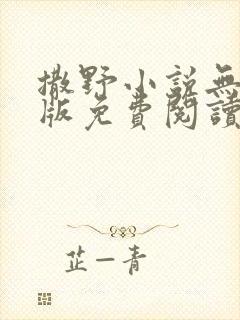 撒野小説無
版免費閱讀
芷一青